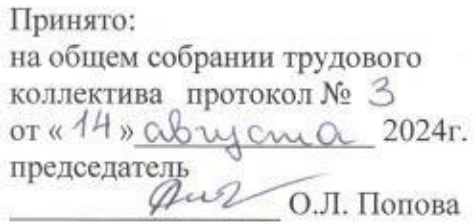 Принято:
на общем собрании трудового
коллектива протокол № 3
от « 14 » августа 2024г.
председатель
О.Л. Попова